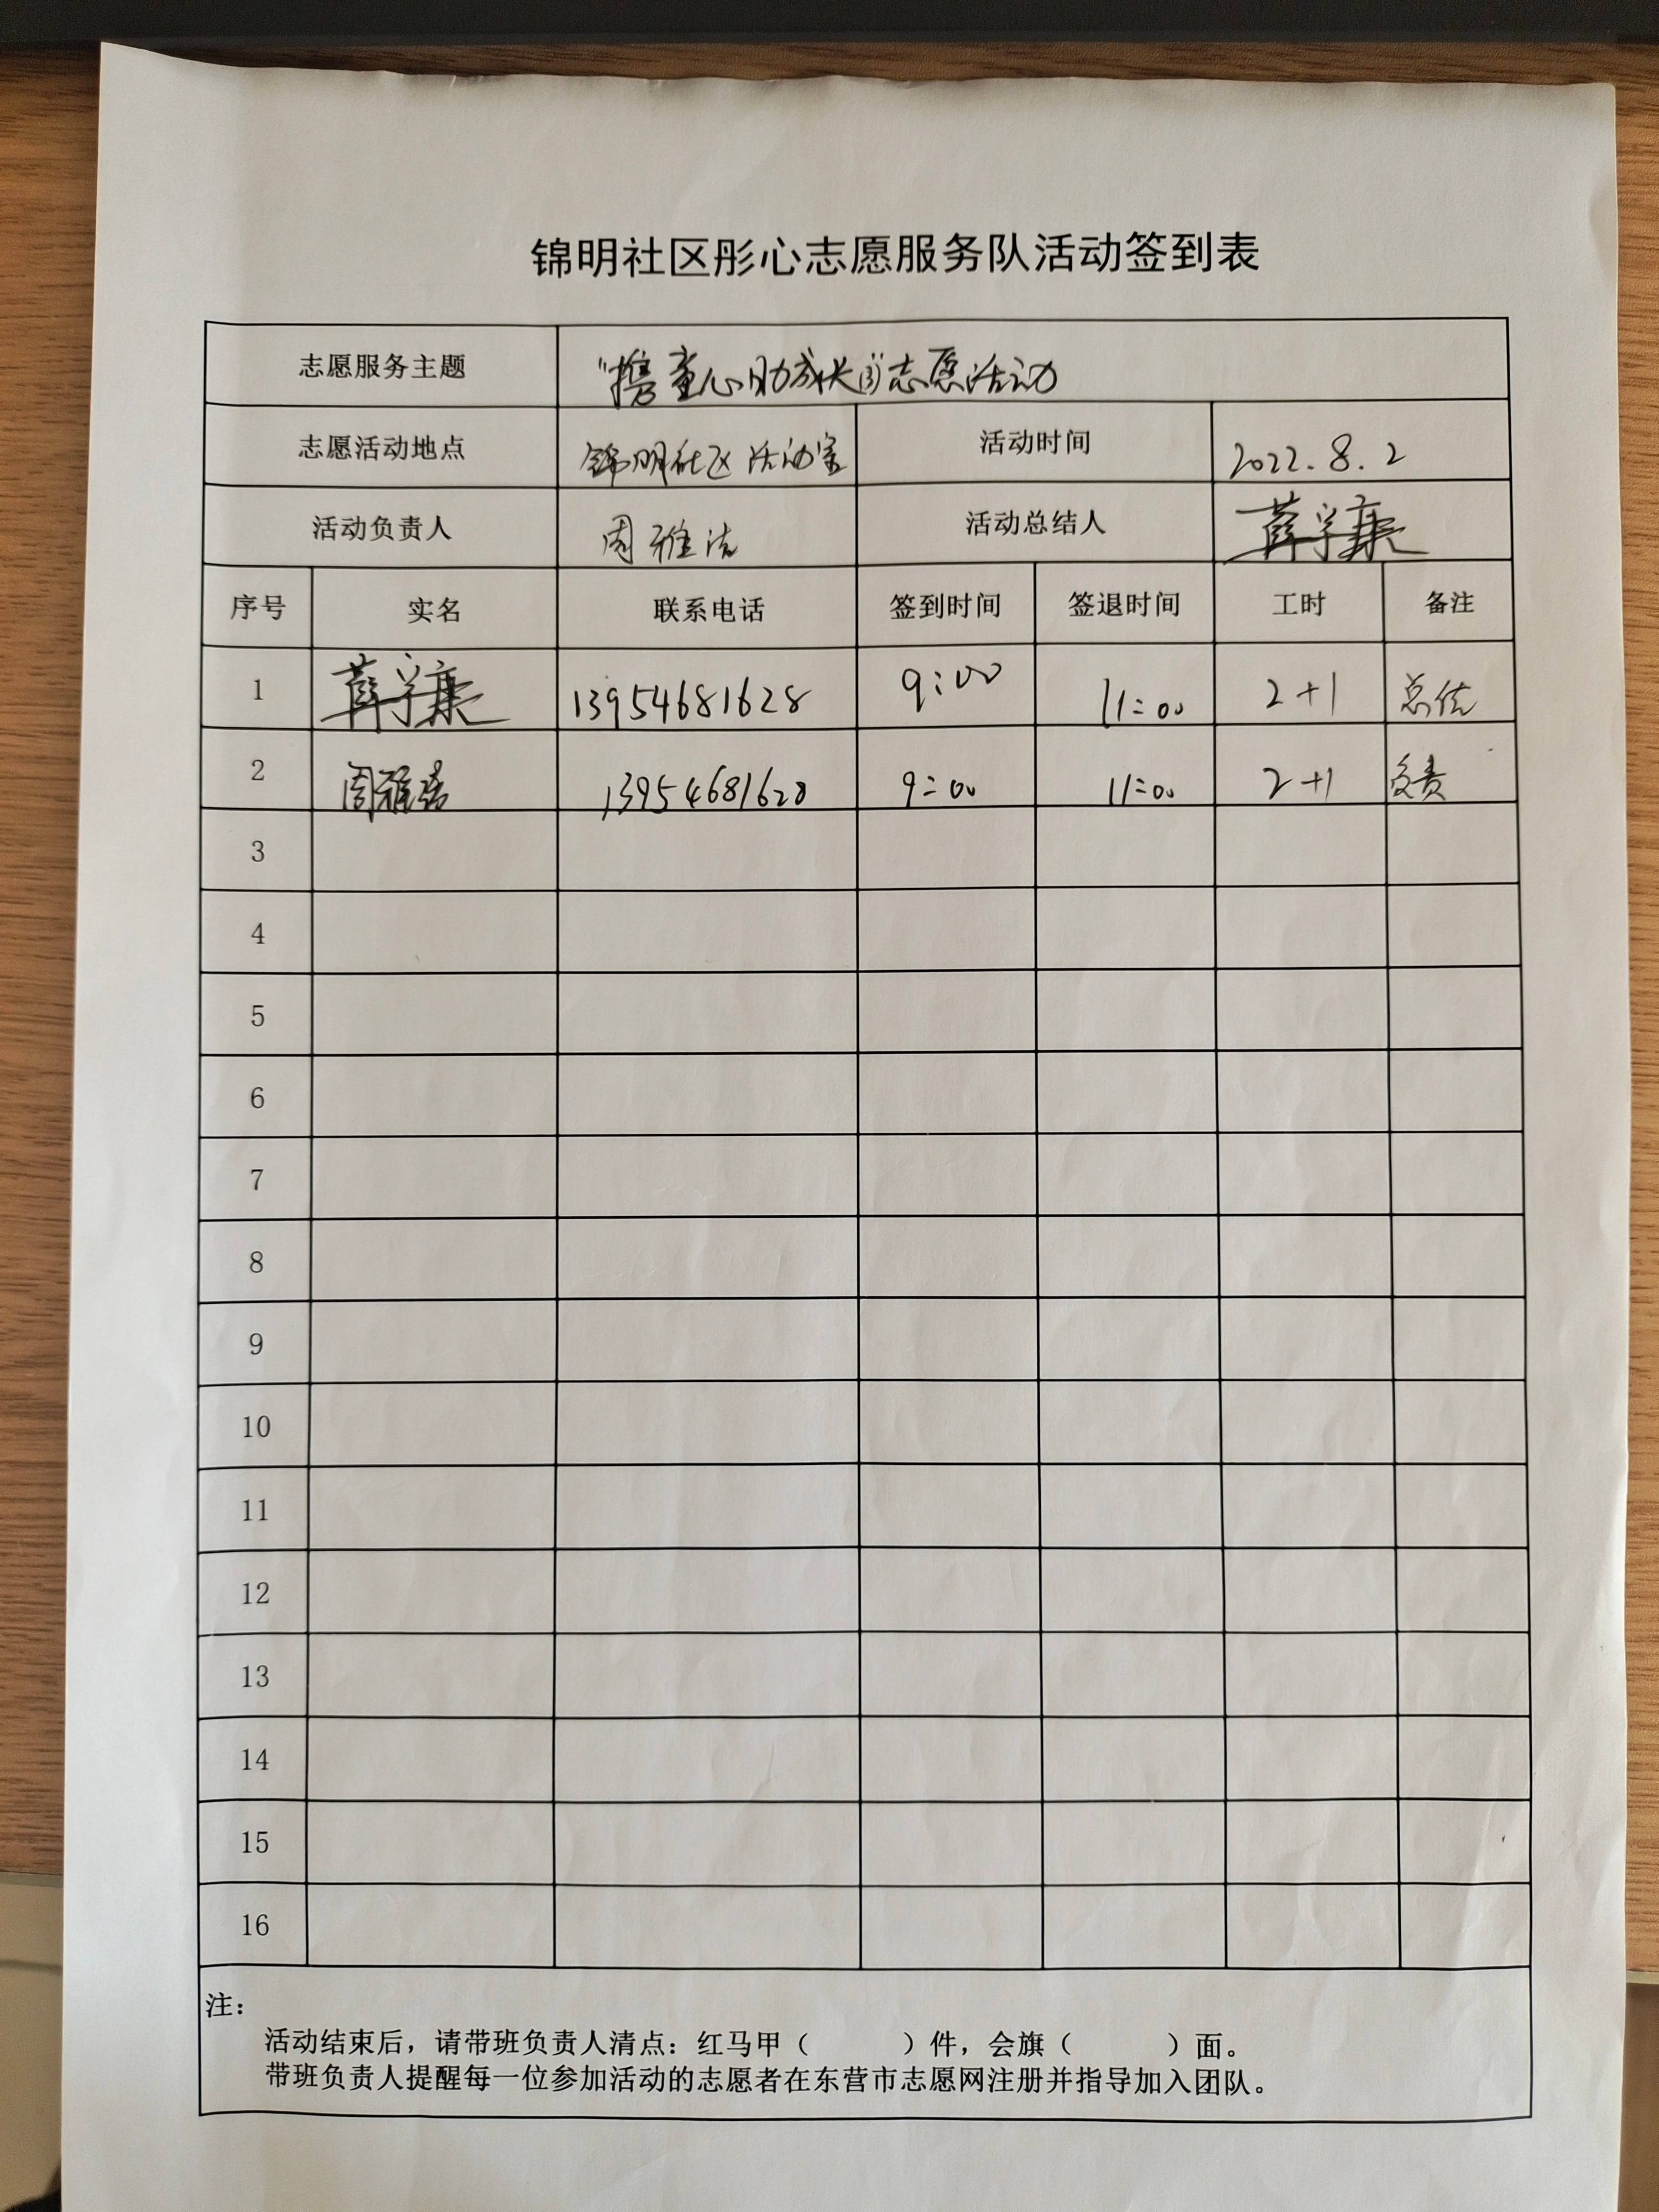 锦明社区彤心志愿服务队活动签到表
志愿服务主题 "携童心助成长"志愿活动
志愿活动地点 锦明社区活动室 活动时间 2022.8.2
活动负责人 周雅洁 活动总结人 薛学康
序号 实名 联系电话 签到时间 签退时间 工时 备注
1 薛学康 13954681628 9:00 11:00 2+1 总结
2 周雅洁 13954681628 9:00 11:00 2+1 负责
3
4
5
6
7
8
9
10
11
12
13
14
15
16
注：
活动结束后，请带班负责人清点：红马甲（ ）件，会旗（ ）面。
带班负责人提醒每一位参加活动的志愿者在东营市志愿网注册并指导加入团队。